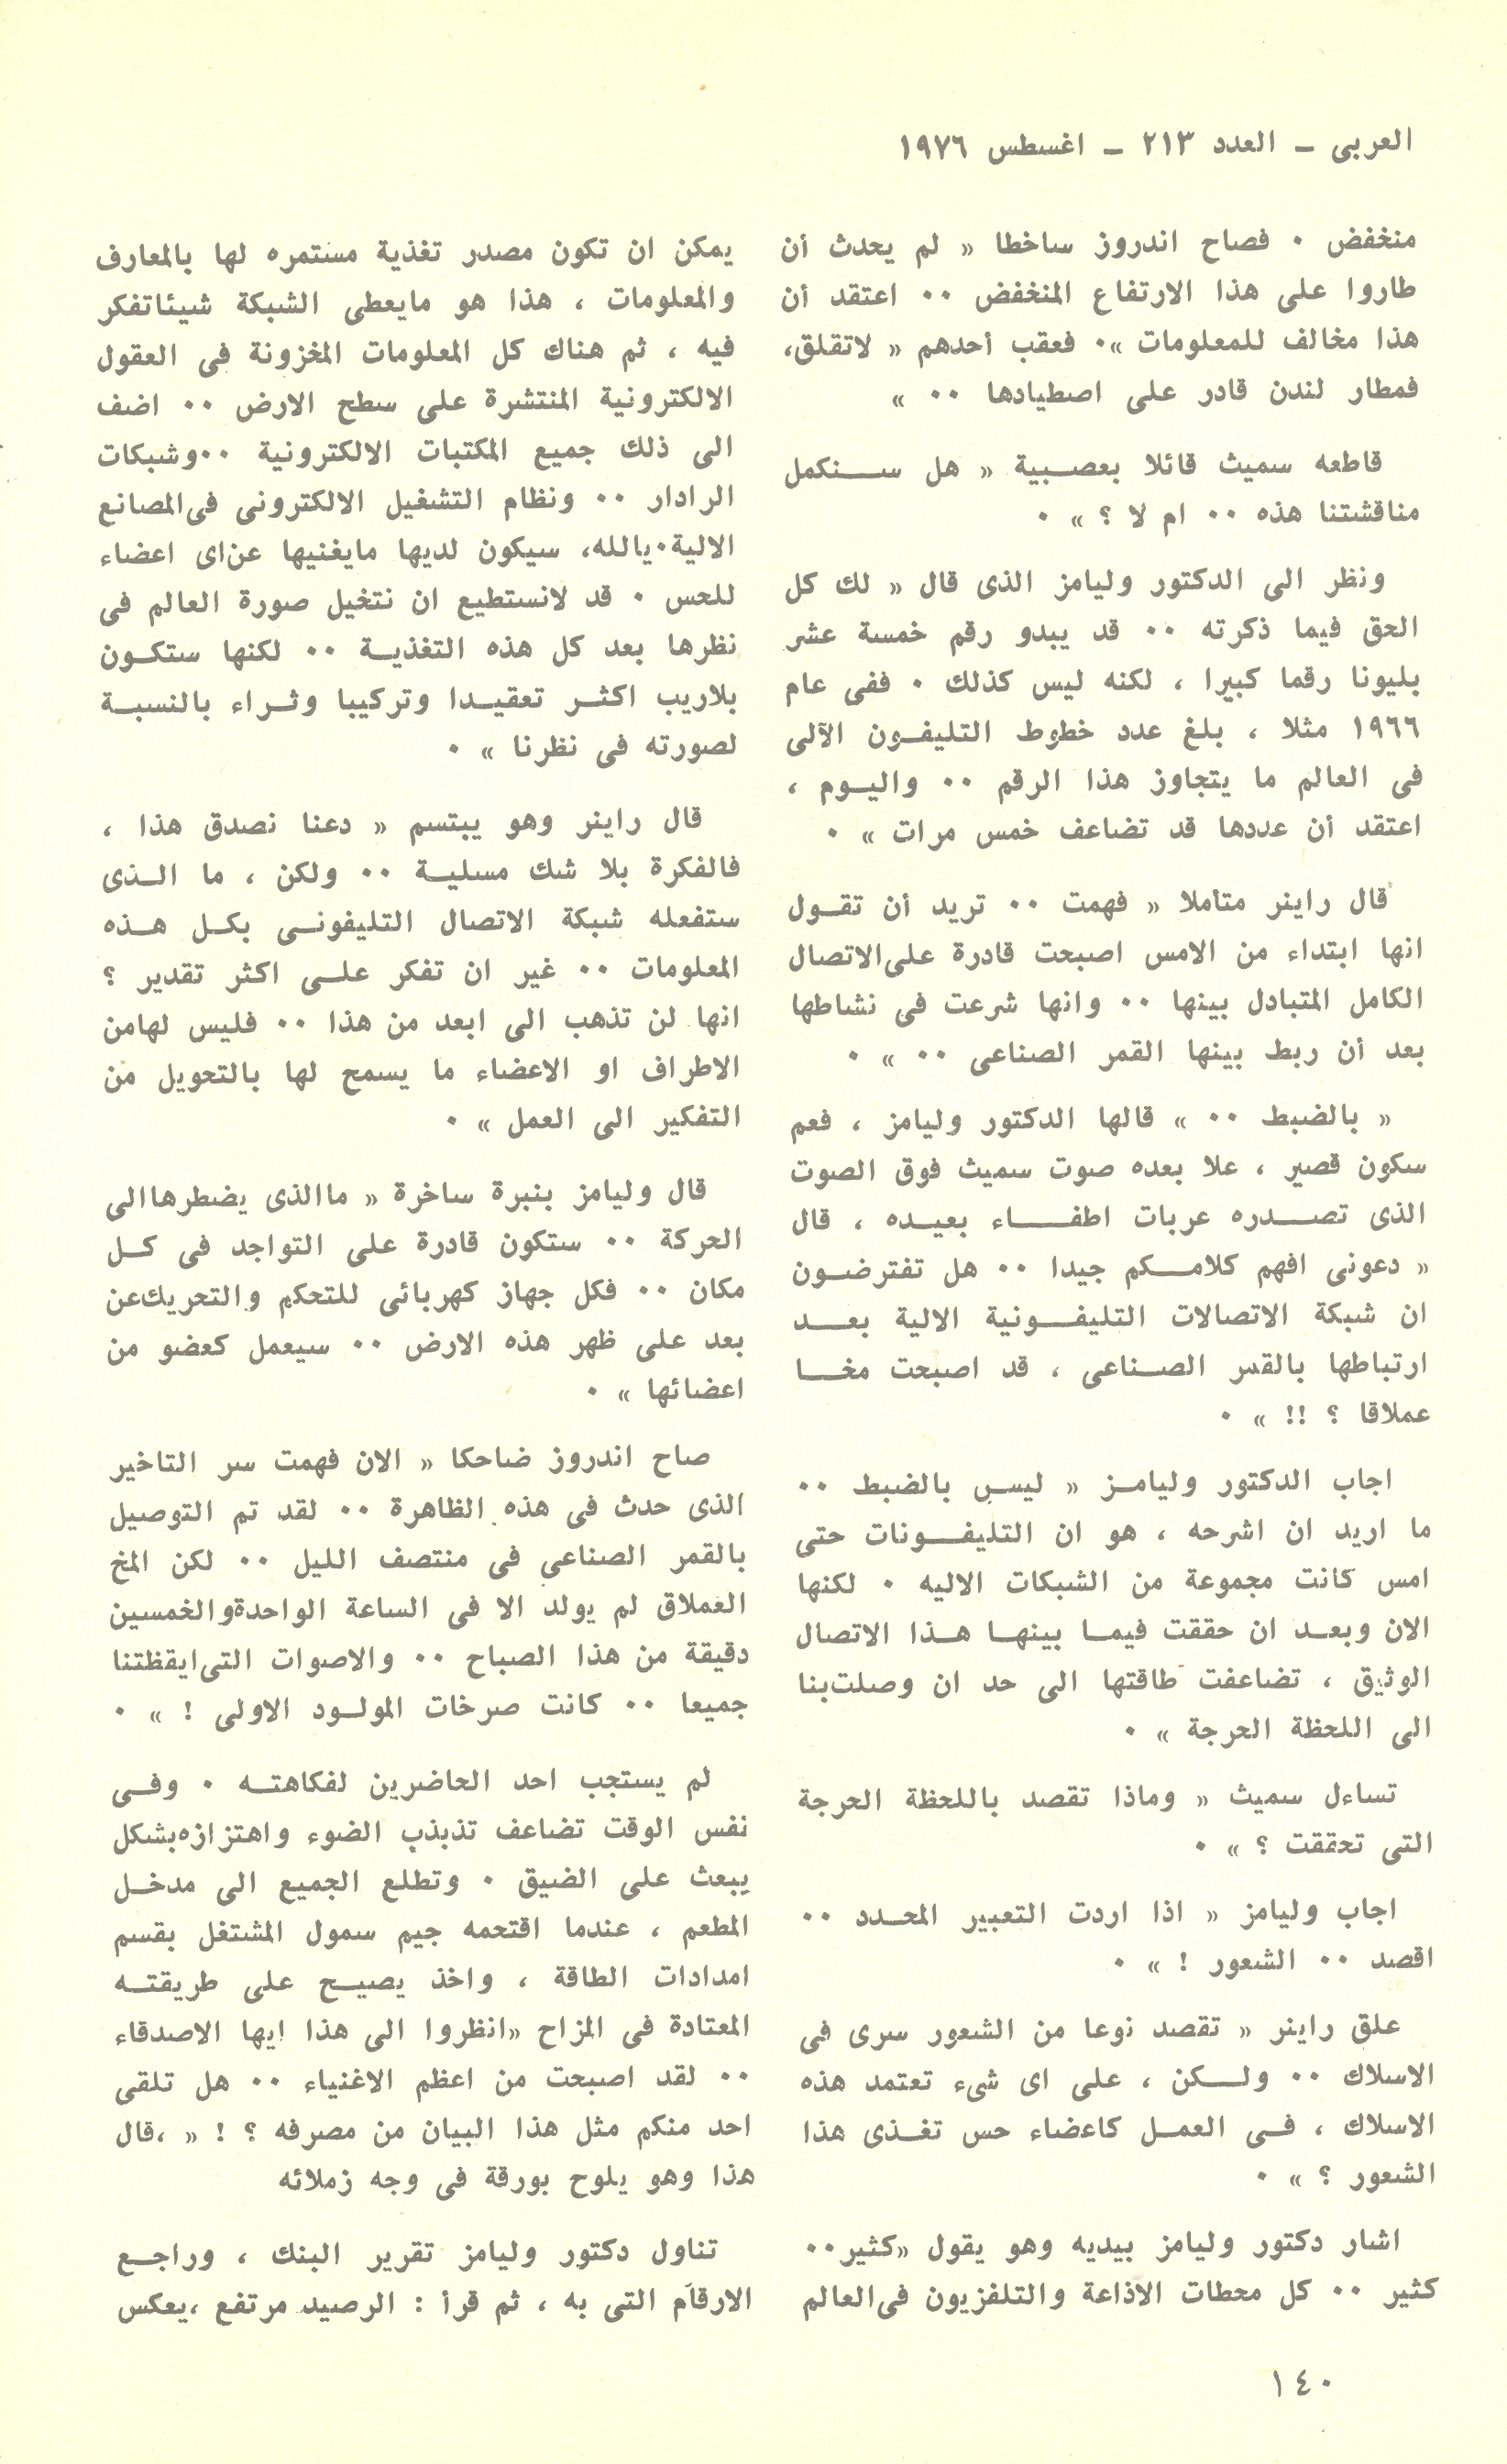 العربى ـ العدد ٢١٣ ـ اغسطس ١٩٧٦
منخفض ٠ فصاح اندروز ساخطا « لم يحدث أن
طاروا على هذا الارتفاع المنخفض ٠٠ اعتقد أن
هذا مخالف للمعلومات »٠ فعقب أحدهم « لاتقلق،
فمطار لندن قادر على اصطيادها ٠٠ »
قاطعه سميث قائلا بعصبية « هل سنكمل
مناقشتنا هذه ٠٠ ام لا ؟ » ٠
ونظر الى الدكتور وليامز الذى قال « لك كل
الحق فيما ذكرته ٠٠ قد يبدو رقم خمسة عشر
بليونا رقما كبيرا ، لكنه ليس كذلك ٠ ففى عام
١٩٦٦ مثلا ، بلغ عدد خطوط التليفون الآلى
فى العالم ما يتجاوز هذا الرقم ٠٠ واليوم ،
اعتقد أن عددها قد تضاعف خمس مرات » ٠
قال راينر متأملا « فهمت ٠٠ تريد أن تقول
انها ابتداء من الامس اصبحت قادرة على الاتصال
الكامل المتبادل بينها ٠٠ وانها شرعت فى نشاطها
بعد أن ربط بينها القمر الصناعى ٠٠ » ٠
« بالضبط ٠٠ » قالها الدكتور وليامز ، فعم
سكون قصير ، علا بعده صوت سميث فوق الصوت
الذى تصدره عربات اطفاء بعيده ، قال
« دعونى افهم كلامكم جيدا ٠٠ هل تفترضون
ان شبكة الاتصالات التليفونية الالية بعد
ارتباطها بالقمر الصناعى ، قد اصبحت مخا
عملاقا ؟ !! » ٠
اجاب الدكتور وليامز « ليس بالضبط ٠٠
ما اريد ان اشرحه ، هو ان التليفونات حتى
امس كانت مجموعة من الشبكات الاليه ٠ لكنها
الان وبعد ان حققت فيما بينها هذا الاتصال
الوثيق ، تضاعفت طاقتها الى حد ان وصلت بنا
الى اللحظة الحرجة » ٠
تساءل سميث « وماذا تقصد باللحظة الحرجة
التى تحققت ؟ » ٠
اجاب وليامز « اذا اردت التعبير المحدد ٠٠
اقصد ٠٠ الشعور ! » ٠
علق راينر « تقصد نوعا من الشعور سرى فى
الاسلاك ٠٠ ولكن ، على اى شىء تعتمد هذه
الاسلاك ، فى العمل كاعضاء حس تغذى هذا
الشعور ؟ » ٠
اشار دكتور وليامز بيديه وهو يقول «كثير ٠٠
كثير ٠٠ كل محطات الاذاعة والتلفزيون فى العالم
يمكن ان تكون مصدر تغذية مستمره لها بالمعارف
والمعلومات ، هذا هو مايعطى الشبكة شيئاتفكر
فيه ، ثم هناك كل المعلومات المخزونة فى العقول
الالكترونية المنتشرة على سطح الارض ٠٠ اضف
الى ذلك جميع المكتبات الالكترونية ٠٠وشبكات
الرادار ٠٠ ونظام التشغيل الالكترونى فى المصانع
الالية٠يالله، سيكون لديها مايغنيها عن اى اعضاء
للحس ٠ قد لانستطيع ان نتخيل صورة العالم فى
نظرها بعد كل هذه التغذية ٠٠ لكنها ستكون
بلاريب اكثر تعقيدا وتركيبا وثراء بالنسبة
لصورته فى نظرنا » ٠
قال راينر وهو يبتسم « دعنا نصدق هذا ،
فالفكرة بلا شك مسلية ٠٠ ولكن ، ما الذى
ستفعله شبكة الاتصال التليفونى بكل هذه
المعلومات ٠٠ غير ان تفكر على اكثر تقدير ؟
انها لن تذهب الى ابعد من هذا ٠٠ فليس لهامن
الاطراف او الاعضاء ما يسمح لها بالتحويل من
التفكير الى العمل » ٠
قال وليامز بنبرة ساخرة « ماالذى يضطرهاالى
الحركة ٠٠ ستكون قادرة على التواجد فى كل
مكان ٠٠ فكل جهاز كهربائى للتحكم والتحريك عن
بعد على ظهر هذه الارض ٠٠ سيعمل كعضو من
اعضائها » ٠
صاح اندروز ضاحكا « الان فهمت سر التاخير
الذى حدث فى هذه الظاهرة ٠٠ لقد تم التوصيل
بالقمر الصناعى فى منتصف الليل ٠٠ لكن المخ
العملاق لم يولد الا فى الساعة الواحدةوالخمسين
دقيقة من هذا الصباح ٠٠ والاصوات التى ايقظتنا
جميعا ٠٠ كانت صرخات المولود الاولى ! » ٠
لم يستجب احد الحاضرين لفكاهته ٠ وفى
نفس الوقت تضاعف تذبذب الضوء واهتزازه بشكل
يبعث على الضيق ٠ وتطلع الجميع الى مدخل
المطعم ، عندما اقتحمه جيم سمول المشتغل بقسم
امدادات الطاقة ، واخذ يصيح على طريقته
المعتادة فى المزاح «انظروا الى هذا ايها الاصدقاء
٠٠ لقد اصبحت من اعظم الاغنياء ٠٠ هل تلقى
احد منكم مثل هذا البيان من مصرفه ؟ ! « ،قال
هذا وهو يلوح بورقة فى وجه زملائه
تناول دكتور وليامز تقرير البنك ، وراجع
الارقام التى به ، ثم قرأ : الرصيد مرتفع ،يعكس
١٤٠